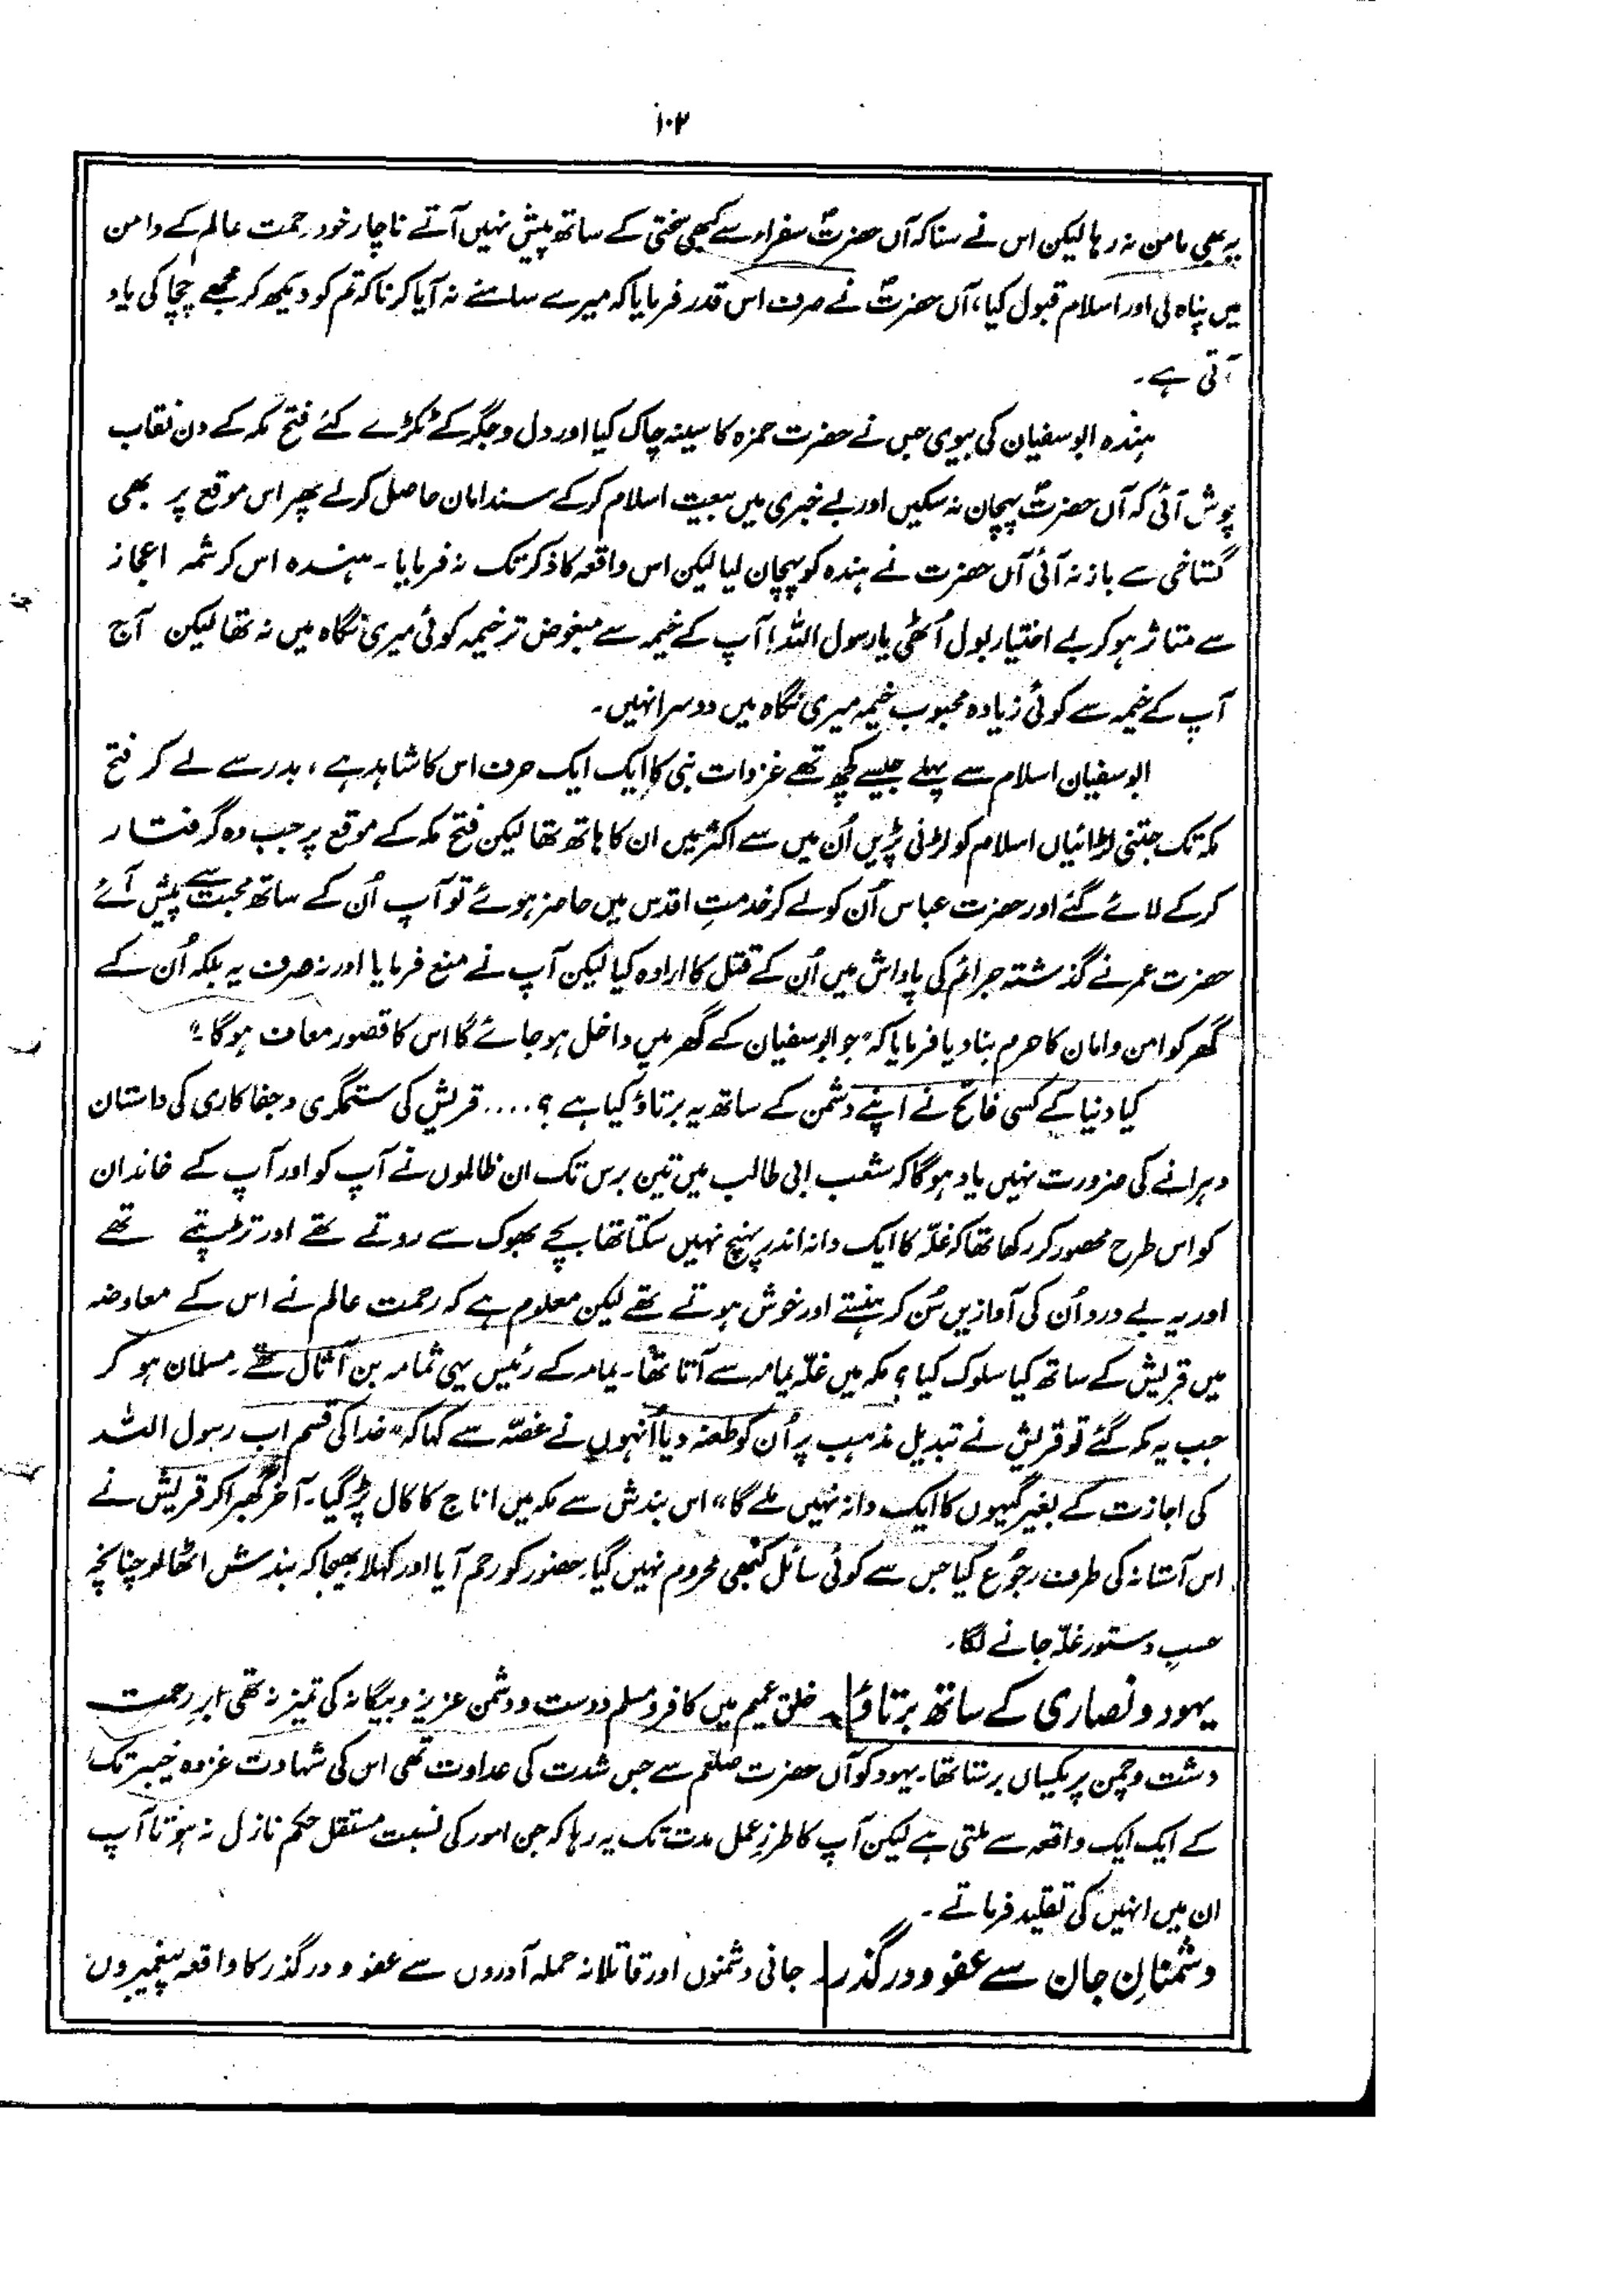 ۱۰۲
یہ بھی مامن نہ رہا لیکن اس نے سنا کہ آں حضرتؐ سفراء سے کبھی سختی کے ساتھ پیش نہیں آتے ناچار خود رحمت عالم کے دامن
میں پناہ لی اور اسلام قبول کیا، آں حضرتؐ نے صرف اس قدر فرمایا کہ میرے سامنے نہ آیا کرنا کہ تم کو دیکھ کر مجھے چچا کی یاد
آتی ہے۔
ہندہ ابو سفیان کی بیوی جس نے حضرت حمزہ کا سینہ چاک کیا اور دل و جگر کے ٹکڑے کئے فتح مکہ کے دن نقاب
پوش آئی کہ آں حضرتؐ پہچان نہ سکیں اور بے خبری میں بیعت اسلام کر کے سند امان حاصل کر لے پھر اس موقع پر بھی
گستاخی سے باز نہ آئی آں حضرت نے ہندہ کو پہچان لیا لیکن اس واقعہ کا ذکر تک نہ فرمایا۔ ہندہ اس کرشمہ اعجاز
سے متاثر ہو کر بے اختیار بول اُٹھی یا رسول اللہ! آپ کے خیمہ سے مبغوض تر خیمہ کوئی میری نگاہ میں نہ تھا لیکن آج
آپ کے خیمہ سے کوئی زیادہ محبوب خیمہ میری نگاہ میں دوسرا نہیں۔
ابو سفیان اسلام سے پہلے جیسے کچھ تھے غزوات نبی کا ایک ایک حرف اس کا شاہد ہے، بدر سے لے کر فتح
مکہ تک جتنی لڑائیاں اسلام کو لڑنی پڑیں اُن میں سے اکثر میں ان کا ہاتھ تھا لیکن فتح مکہ کے موقع پر جب وہ گرفتار
کر کے لائے گئے اور حضرت عباس اُن کو لے کر خدمتِ اقدس میں حاضر ہوئے تو آپ اُن کے ساتھ محبت سے پیش آئے
حضرت عمر نے گذشتہ جرائم کی پاداش میں اُن کے قتل کا ارادہ کیا لیکن آپ نے منع فرمایا اور نہ صرف یہ بلکہ اُن کے
گھر کو امن و امان کا حرم بنا دیا فرمایا کہ "جو ابو سفیان کے گھر میں داخل ہو جائے گا اس کا قصور معاف ہوگا"
کیا دنیا کے کسی فاتح نے اپنے دشمن کے ساتھ یہ برتاؤ کیا ہے؟.... قریش کی ستمگری و جفا کاری کی داستان
دہرانے کی ضرورت نہیں یاد ہوگا کہ شعب ابی طالب میں تین برس تک ان ظالموں نے آپ کو اور آپ کے خاندان
کو اس طرح محصور کر رکھا تھا کہ غلّہ کا ایک دانہ اندر پہنچ نہیں سکتا تھا بچے بھوک سے روتے تھے اور تڑپتے تھے
اور یہ بے درد اُن کی آوازیں سُن کر ہنستے اور خوش ہوتے تھے لیکن معلوم ہے کہ رحمت عالم نے اس کے معاوضہ
میں قریش کے ساتھ کیا سلوک کیا؟ مکہ میں غلّہ یمامہ سے آتا تھا۔ یمامہ کے رئیس یہی ثمامہ بن آثال تھے۔ مسلمان ہو کر
جب یہ مکہ گئے تو قریش نے تبدیل مذہب پر اُن کو طعنہ دیا اُنہوں نے غصّہ سے کہا کہ "خدا کی قسم اب رسول اللہ
کی اجازت کے بغیر گیہوں کا ایک دانہ نہیں ملے گا" اس بندش سے مکہ میں اناج کا کال پڑ گیا۔ آخر گھبرا کر قریش نے
اس آستانہ کی طرف رجوع کیا جس سے کوئی سائل کبھی محروم نہیں گیا۔ حضور کو رحم آیا اور کہلا بھیجا کہ بندش اٹھا لو چنانچہ
حسبِ دستور غلّہ جانے لگا۔
یہود و نصاری کے ساتھ برتاؤ ۔ خلق عمیم میں کافر و مسلم دوست و دشمن عزیز و بیگانہ کی تمیز نہ تھی ابرِ رحمت
دشت و چمن پر یکساں برستا تھا۔ یہود کو آں حضرت صلعم سے جس شدت کی عداوت تھی اس کی شہادت غزوہ خیبر تک
کے ایک ایک واقعہ سے ملتی ہے لیکن آپ کا طرزِ عمل مدت تک یہ رہا کہ جن امور کی نسبت مستقل حکم نازل نہ ہوتا آپ
ان میں انہیں کی تقلید فرماتے۔
دشمنانِ جان سے عفو و درگذر ۔ جانی دشمنوں اور قاتلانہ حملہ آوروں سے عفو و درگذر کا واقعہ پیغمبروں